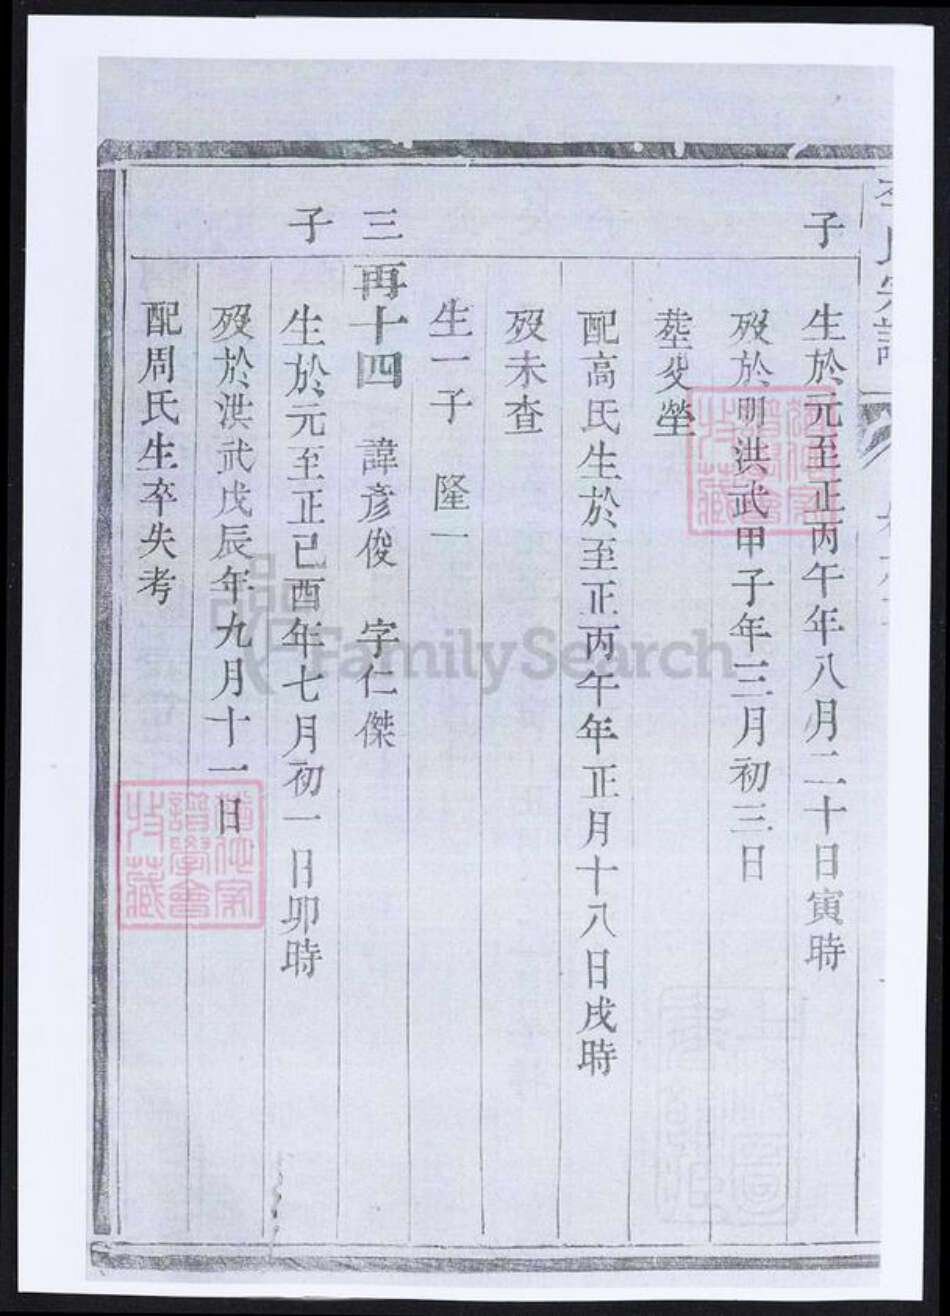 李氏宗譜
子
生於元至正丙午年八月二十日寅時
歿於明洪武甲子年三月初三日
塟父塋
配高氏生於至正丙午年正月十八日戌時
歿未查
生一子 隆一
三 再十四 諱彥俊 字仁傑
子
生於元至正己酉年七月初一日卯時
歿於洪武戊辰年九月十一日
配周氏生卒失考
譜學會
收藏
譜學會
收藏
FamilySearch